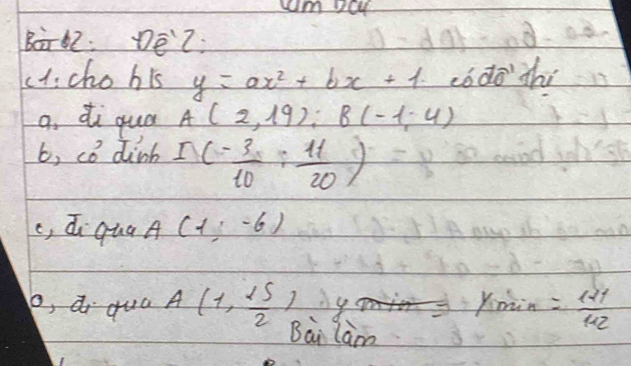 làm bài
Bài 2: Đề 2:
c1: cho h/s y = ax² + bx + 1 có đồ thị
a, đi qua A (2, 19); B (-1; 4)
b, có đỉnh I (-3/10; 11/20)
c, đi qua A (1; -6)
đi qua A (1, 15/2) y min = y min =
Bài làm